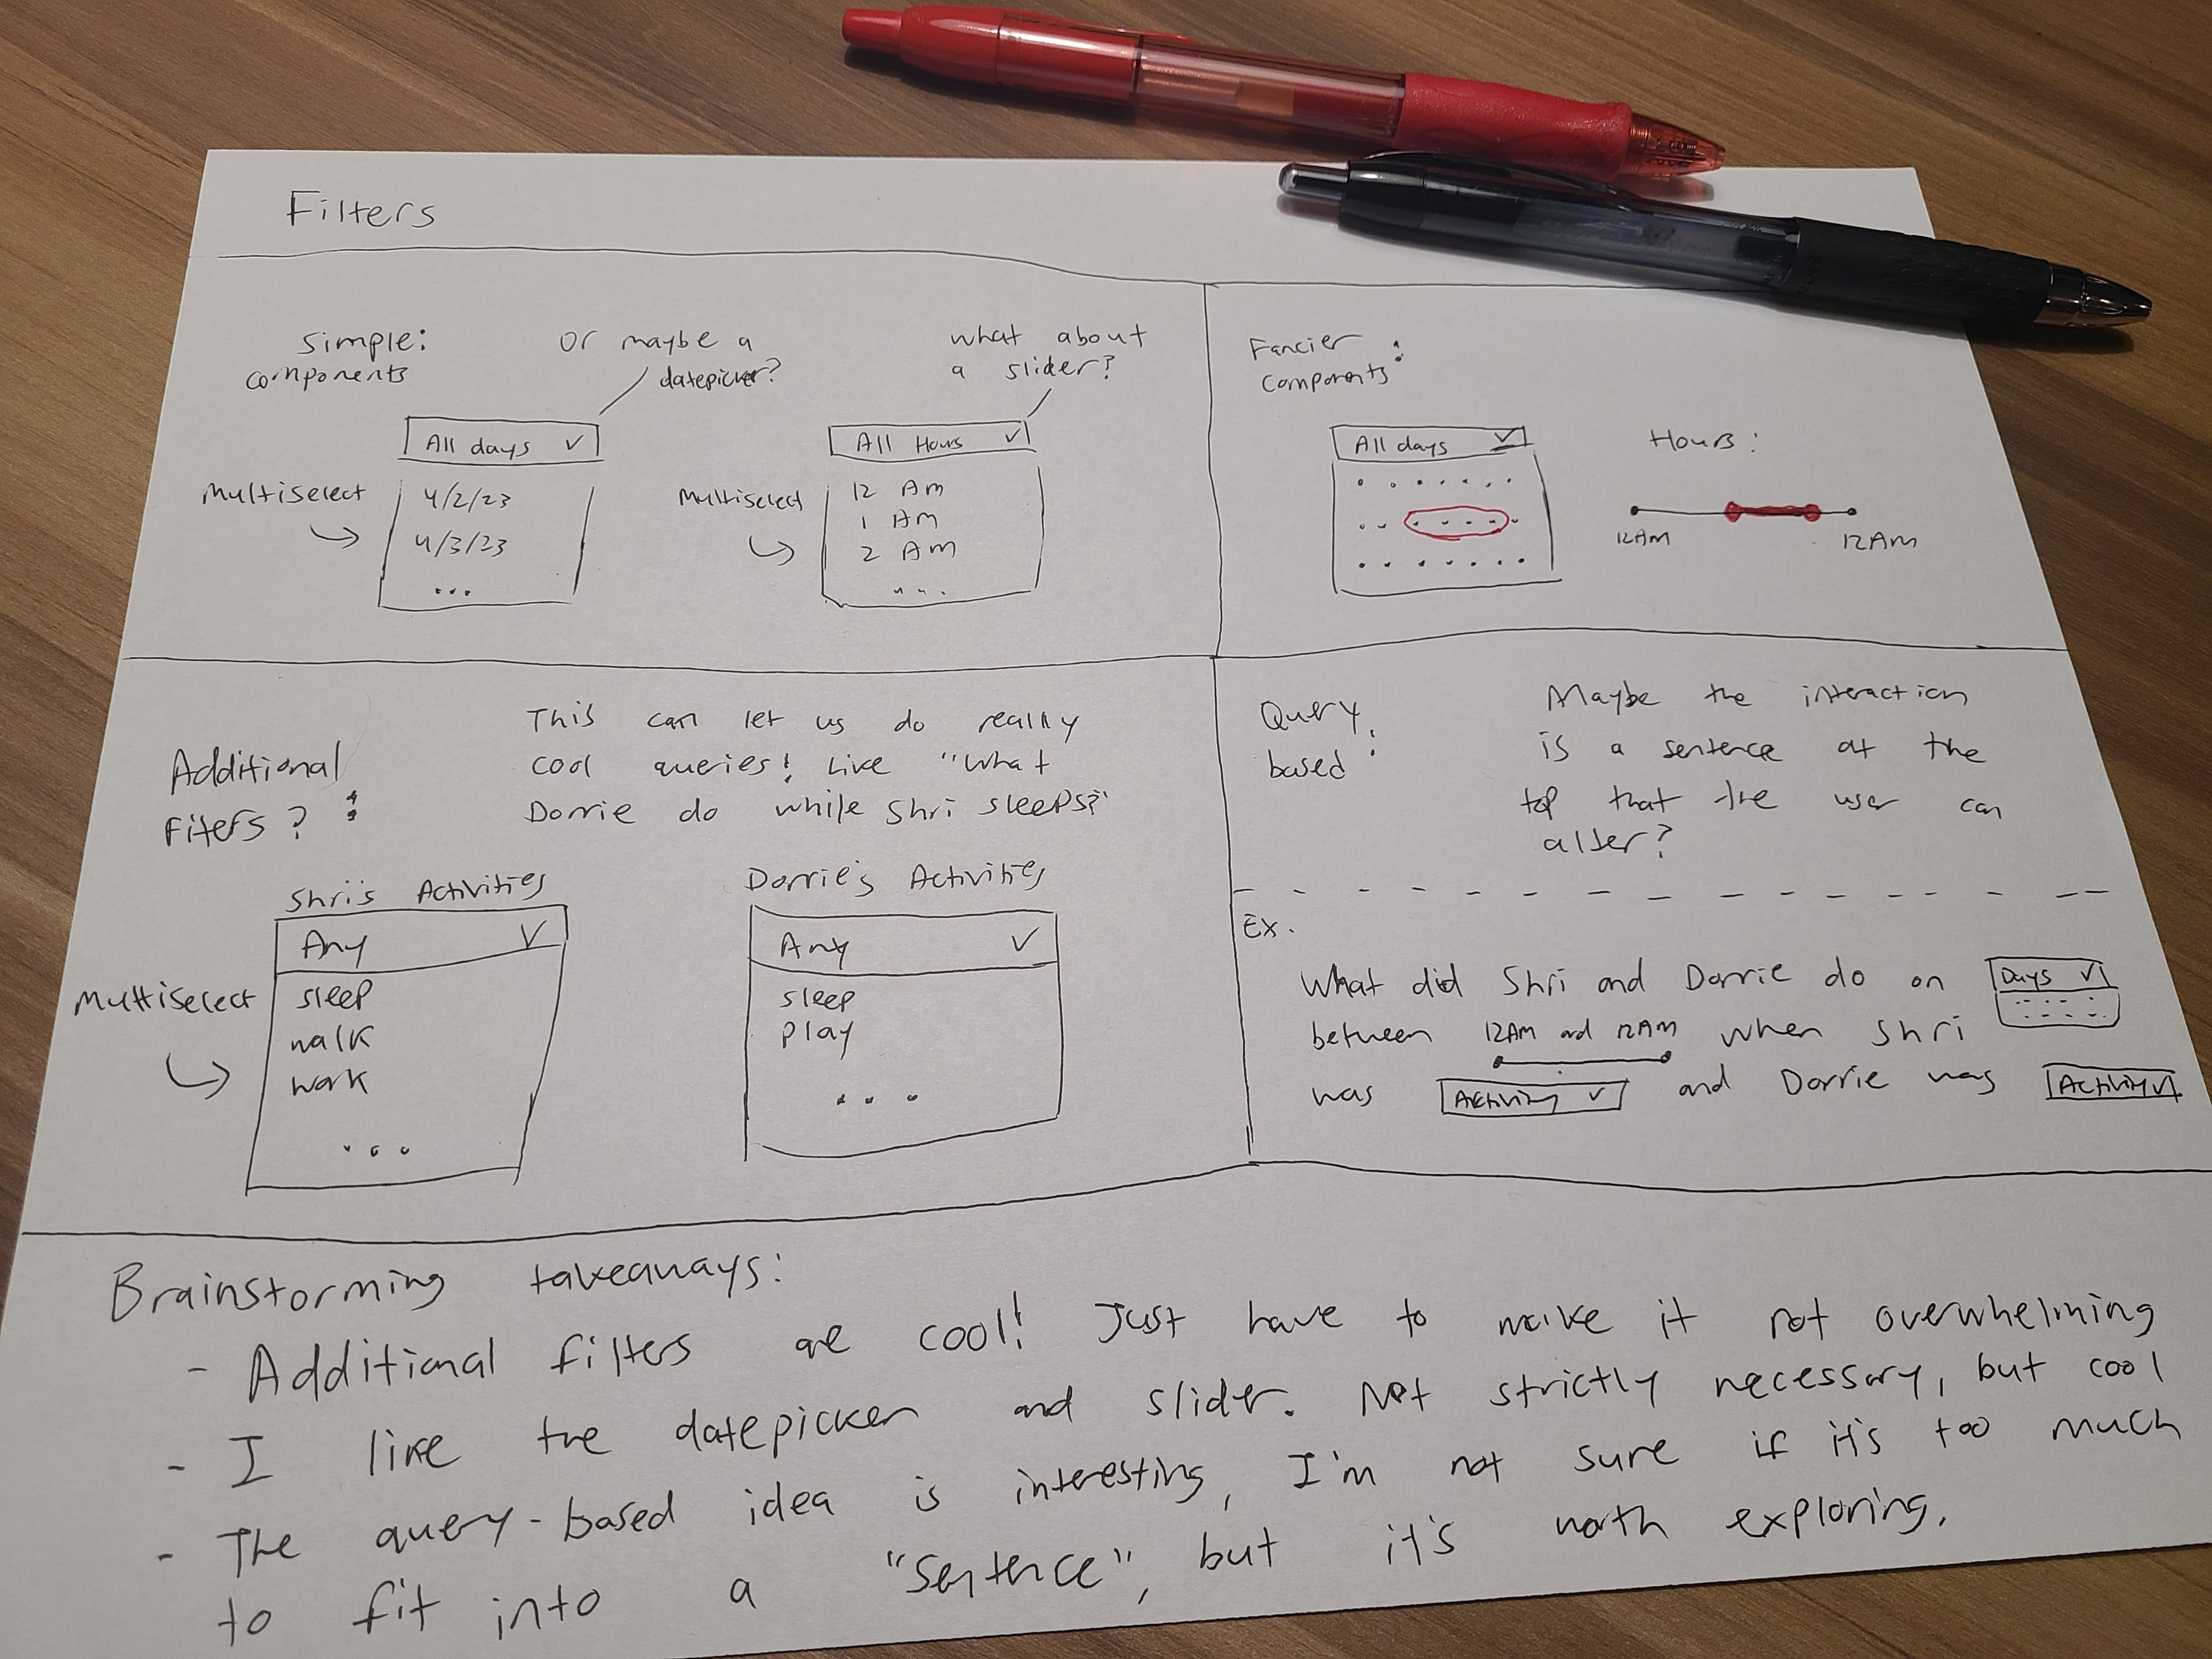 Filters
Simple:
components
or maybe a
datepicker?
what about
a slider?
All days
Multiselect
4/2/23
4/3/23
...
All Hours
Multiselect
12 AM
1 AM
2 AM
...
Fancier :
components
All days
Hours :
12AM
12AM
Additional
Fiters? :
This can let us do really
cool queries! Like "What
Dorrie do while Shri sleeps?"
Shri's Activities
Any
Multiselect
sleep
walk
work
...
Dorrie's Activities
Any
sleep
play
...
Query :
based
Maybe the interaction
is a sentence at the
top that the user can
alter?
Ex.
What did Shri and Dorrie do on Days
between 12AM and 12AM when Shri
was Activity and Dorrie was Activity
Brainstorming takeaways:
- Additional filters are cool! Just have to make it not overwhelming
- I like the datepicker and slider. Not strictly necessary, but cool
- The query-based idea is interesting, I'm not sure if it's too much
to fit into a "sentence", but it's worth exploring.